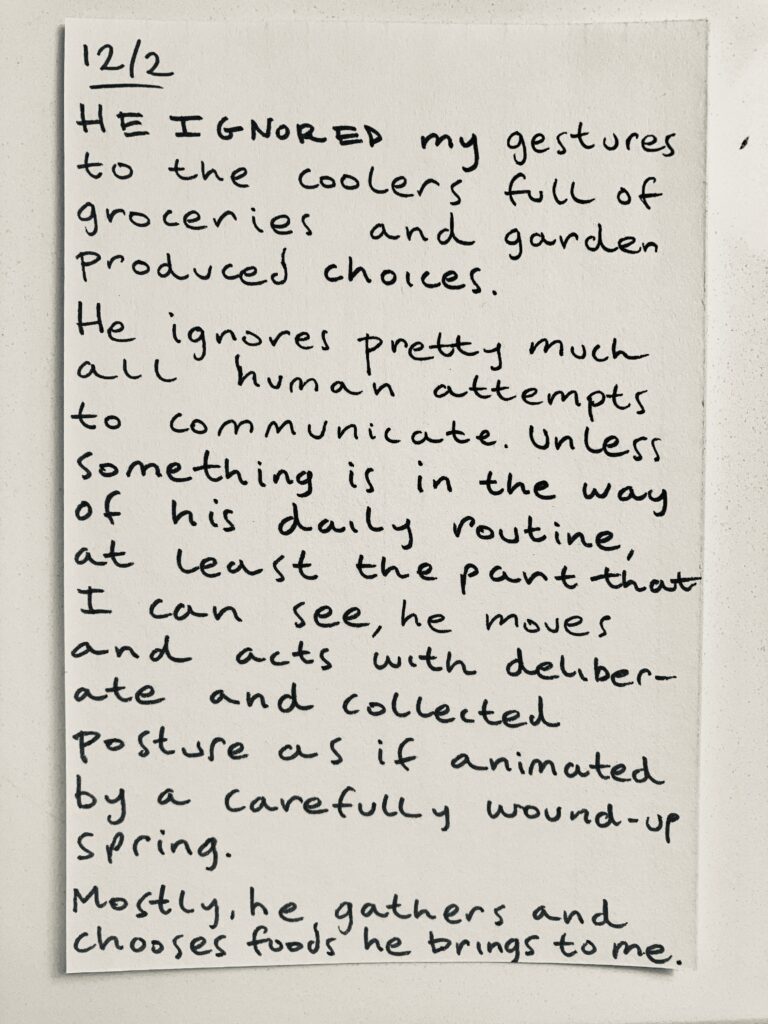 12/2
HE IGNORED my gestures
to the coolers full of
groceries and garden
produced choices.
He ignores pretty much
all human attempts
to communicate. Unless
something is in the way
of his daily routine,
at least the part that
I can see, he moves
and acts with deliber-
ate and collected
posture as if animated
by a carefully wound-up
spring.
Mostly, he gathers and
chooses foods he brings to me.